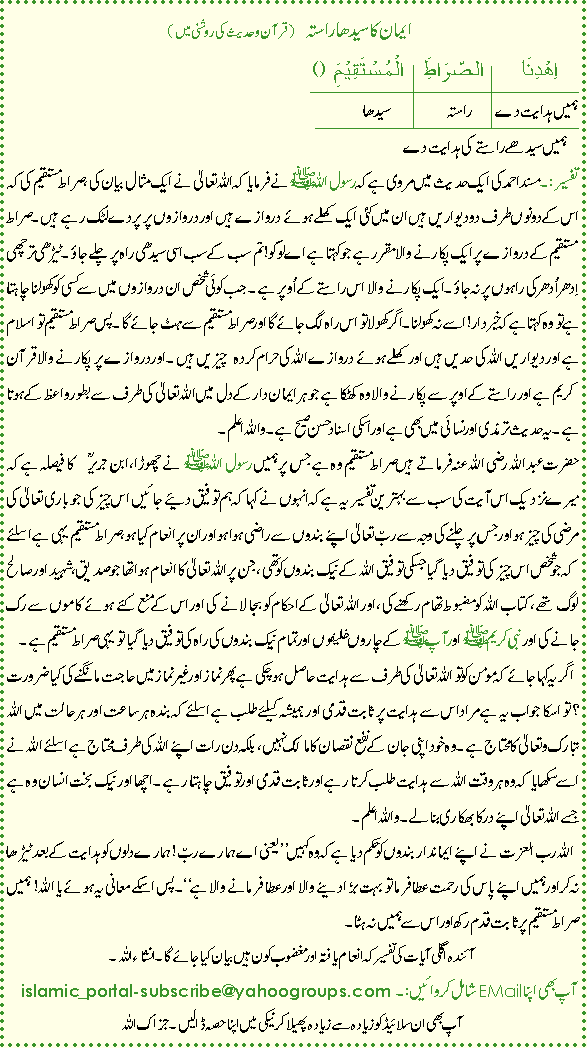 ایمان کا سیدھا راستہ (قرآن و حدیث کی روشنی میں)
اِهْدِنَا الصِّرَاطَ الْمُسْتَقِيْمَ ()
ہمیں ہدایت دے راستہ سیدھا
ہمیں سیدھے راستے کی ہدایت دے
تفسیر:۔ مسند احمد کی ایک حدیث میں مروی ہے کہ رسول اللہ ﷺ نے فرمایا کہ اللہ تعالیٰ نے ایک مثال بیان کی صراط مستقیم کی کہ
اس کے دونوں طرف دو دیواریں ہیں ان میں کئی ایک کھلے ہوئے دروازے ہیں اور دروازوں پر پردے لٹک رہے ہیں۔ صراط
مستقیم کے دروازے پر ایک پکارنے والا مقرر ہے جو کہتا ہے اے لوگو! تم سب کے سب اسی سیدھی راہ پر چلے جاؤ۔ ٹیڑھی ترچھی
اِدھر اُدھر کی راہوں پر نہ جاؤ۔ ایک پکارنے والا اس راستے کے اُوپر ہے۔ جب کوئی شخص ان دروازوں میں سے کسی کو کھولنا چاہتا
ہے تو وہ کہتا ہے کہ خبردار! اسے نہ کھولنا۔ اگر کھولا تو اس راہ لگ جائے گا اور صراط مستقیم سے ہٹ جائے گا۔ پس صراط مستقیم تو اسلام
ہے اور دیواریں اللہ کی حدیں ہیں اور کھلے ہوئے دروازے اللہ کی حرام کردہ چیزیں ہیں۔ اور دروازے پر پکارنے والا قرآن
کریم ہے اور راستے کے اوپر سے پکارنے والا وہ کھٹکا ہے جو ہر ایمان دار کے دل میں اللہ تعالیٰ کی طرف سے بطور واعظ کے ہوتا
ہے۔ یہ حدیث ترمذی اور نسائی میں بھی ہے اور اسکی اسناد حسن صحیح ہے۔ واللہ اعلم۔
حضرت عبداللہ رضی اللہ عنہ فرماتے ہیں صراط مستقیم وہ ہے جس پر ہمیں رسول اللہ ﷺ نے چھوڑا، ابن جریرؒ کا فیصلہ ہے کہ
میرے نزدیک اس آیت کی سب سے بہترین تفسیر یہ ہے کہ انہوں نے کہا کہ ہم توفیق دیئے جائیں اس چیز کی جو باری تعالیٰ کی
مرضی کی چیز ہو اور جس پر چلنے کی وجہ سے ربّ تعالیٰ اپنے بندوں سے راضی ہوا ہو اور ان پر انعام کیا ہو صراط مستقیم یہی ہے اسلئے
کہ جو شخص اس چیز کی توفیق دیا گیا جسکی توفیق اللہ کے نیک بندوں کو تھی، جن پر اللہ تعالیٰ کا انعام ہوا تھا جو صدیق شہید اور صالح
لوگ تھے، کتاب اللہ کو مضبوط تھام رکھنے کی، اور اللہ تعالیٰ کے احکام کو بجا لانے کی اور اس کے منع کئے ہوئے کاموں سے رک
جانے کی اور نبی کریم ﷺ اور آپ ﷺ کے چاروں خلیفوں اور تمام نیک بندوں کی راہ کی توفیق دیا گیا تو یہی صراط مستقیم ہے۔
اگر یہ کہا جائے کہ مؤمن کو تو اللہ تعالیٰ کی طرف سے ہدایت حاصل ہو چکی ہے پھر نماز اور غیر نماز میں حاجت مانگنے کی کیا ضرورت
؟ تو اسکا جواب یہ ہے مراد اس سے ہدایت پر ثابت قدمی اور ہمیشہ کیلئے طلب ہے اسلئے کہ بندہ ہر ساعت اور ہر حالت میں اللہ
تبارک و تعالیٰ کا محتاج ہے۔ وہ خود اپنی جان کے نفع نقصان کا مالک نہیں، بلکہ دن رات اپنے اللہ کی طرف محتاج ہے اسلئے اللہ نے
اسے سکھایا کہ وہ ہر وقت اللہ سے ہدایت طلب کرتا رہے اور ثابت قدمی اور توفیق چاہتا رہے۔ اچھا اور نیک بخت انسان وہ ہے
جسے اللہ تعالیٰ اپنے در کا بھکاری بنا لے۔ واللہ اعلم۔
اللہ رب العزت نے اپنے ایماندار بندوں کو حکم دیا ہے کہ وہ کہیں ’’یعنی اے ہمارے ربّ! ہمارے دلوں کو ہدایت کے بعد ٹیڑھا
نہ کر اور ہمیں اپنے پاس کی رحمت عطا فرما تو بہت بڑا دینے والا اور عطا فرمانے والا ہے‘‘۔ پس اسکے معانی یہ ہوئے یا اللہ! ہمیں
صراط مستقیم پر ثابت قدم رکھ اور اس سے ہمیں نہ ہٹا۔
آئندہ اگلی آیات کی تفسیر کہ انعام یافتہ اور مغضوب کون ہیں بیان کیا جائے گا۔ انشاء اللہ۔
آپ بھی اپنا EMail شامل کروائیں:۔ islamic_portal-subscribe@yahoogroups.com
آپ بھی ان سلائیڈ کو زیادہ سے زیادہ پھیلا کر نیکی میں اپنا حصہ ڈالیں۔ جزاک اللہ